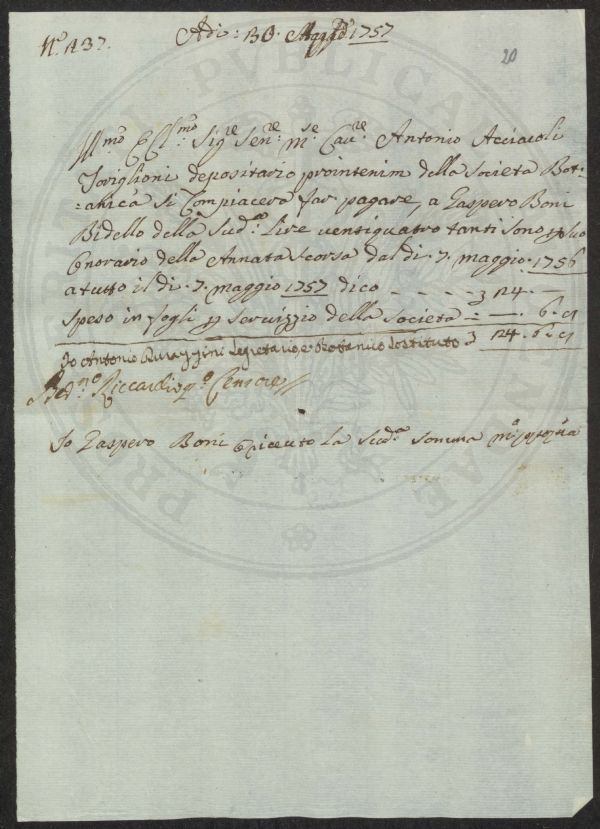 N.º 137. Adi: 30. Maggio 1757
20
Ill.mo e Cl.mo Sig.re Sen.re M.se Cav.re Antonio Acciaioli
Toriglioni depositario prointerim della Società Bot=
=anica si Compiacerà far pagare, a Gaspero Boni
Bidello della Sud.a lire ventiquatro tanti sono p suo
Onorario della Annata Scorsa dal di 7. maggio. 1756
a tutto il di. 7. maggio 1757 dico - - - - - 24. —
Speso in fogli p servizzio della Società - — . 6. 
Io Antonio Segretario e Botanico Sostituto 24. 6. 
Riccardi q.o Censore
Io Gaspero Boni ò riceuto la Sud.a Somma m.o
PUBLICAE